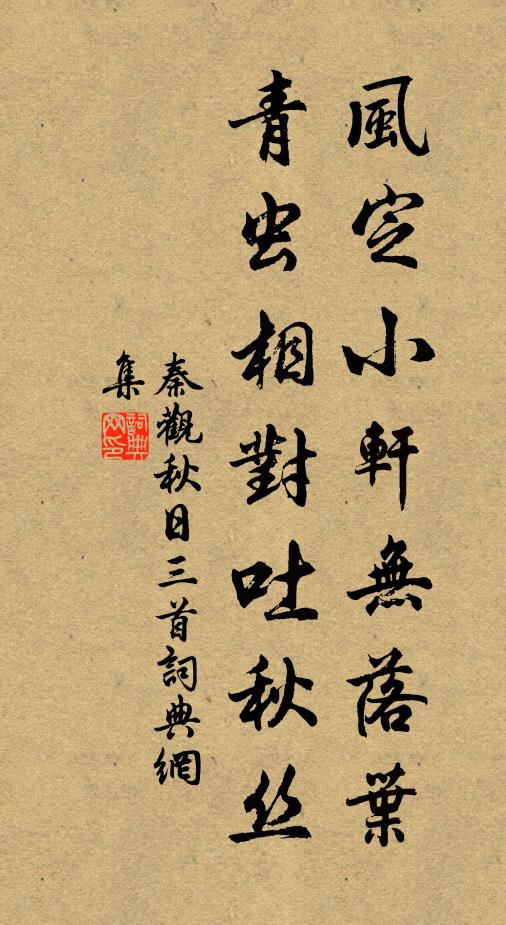 風定小軒無落葉
青虫相對吐秋丝
秦觀秋日三首詞典網
集
詞典網印